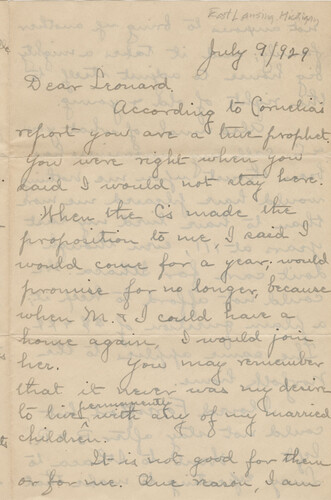 East Lansing, Michigan
July 9/929
Dear Leonard.
According to Cornelia's
report you are a true prophet.
You were right when you
said I would not stay here.
When the Cs made the
proposition to me, I said I
would come for a year; would
promise for no longer, because
when M. & I could have a
home again, I would join
her. You may remember
that it never was my desire
permanently
to live with any of my married
children.
It is not good for them
or for me. One reason, I am